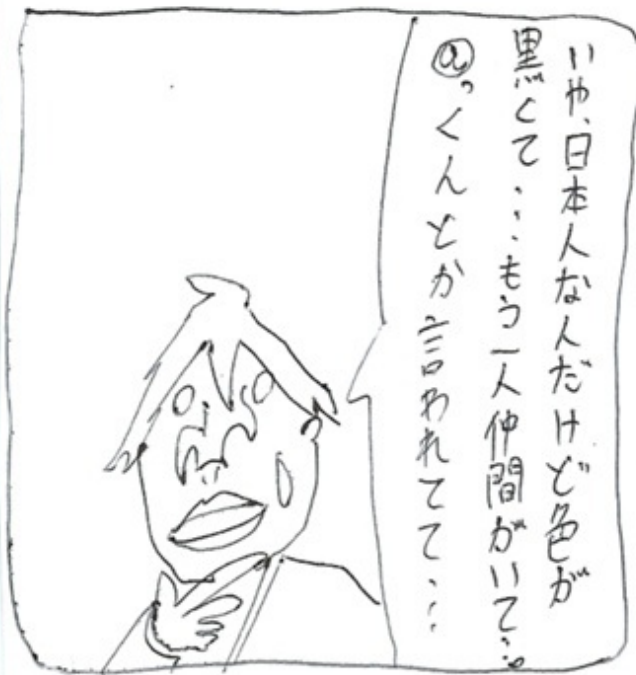 いや、日本人な人だけど色が
黒くて・・・もう一人仲間がいて。
aっくんとか言われてて・・・